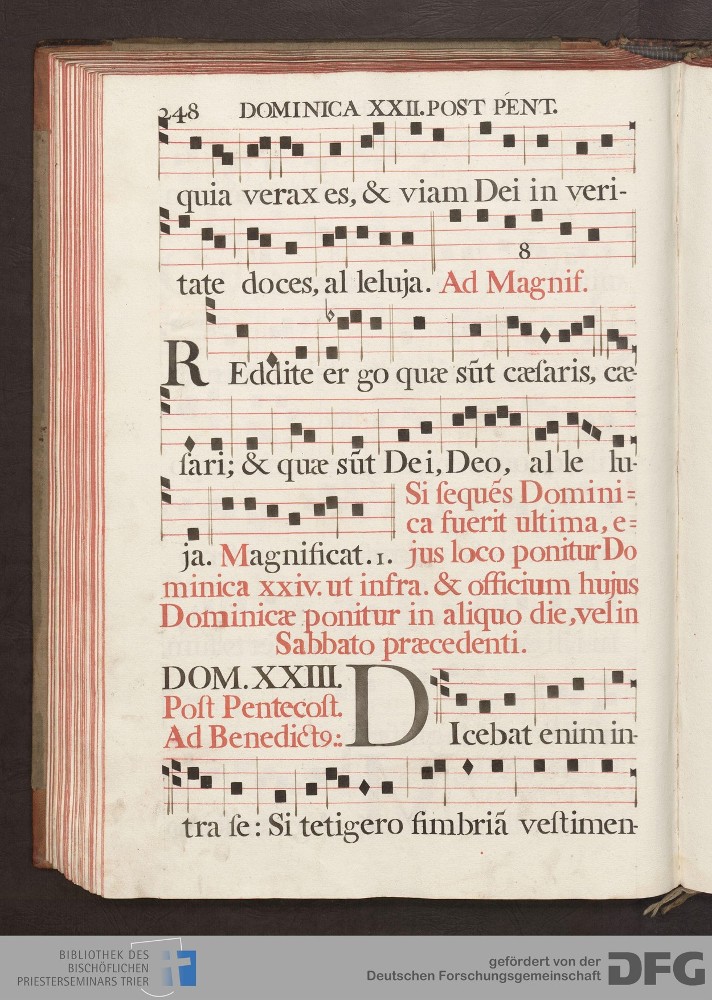 248 DOMINICA XXII. POST PENT.
quia verax es, & viam Dei in veri-
8
tate doces, al leluja. Ad Magnif.
REddite er go quæ sũt cæſaris, cæ-
ſari; & quæ sũt Dei, Deo, al le lu-
Si ſequẽs Domini=
ca fuerit ultima, e=
ja. Magnificat. 1. jus loco ponitur Do
minica xxiv. ut infra. & officium hujus
Dominicæ ponitur in aliquo die, vel in
Sabbato præcedenti.
DOM. XXIII.
Poſt Pentecoſt.
Ad Benedict9.:
DIcebat enim in-
tra ſe: Si tetigero fimbriã veſtimen-
BIBLIOTHEK DES
BISCHÖFLICHEN
PRIESTERSEMINARS TRIER
gefördert von der
Deutschen Forschungsgemeinschaft
DFG